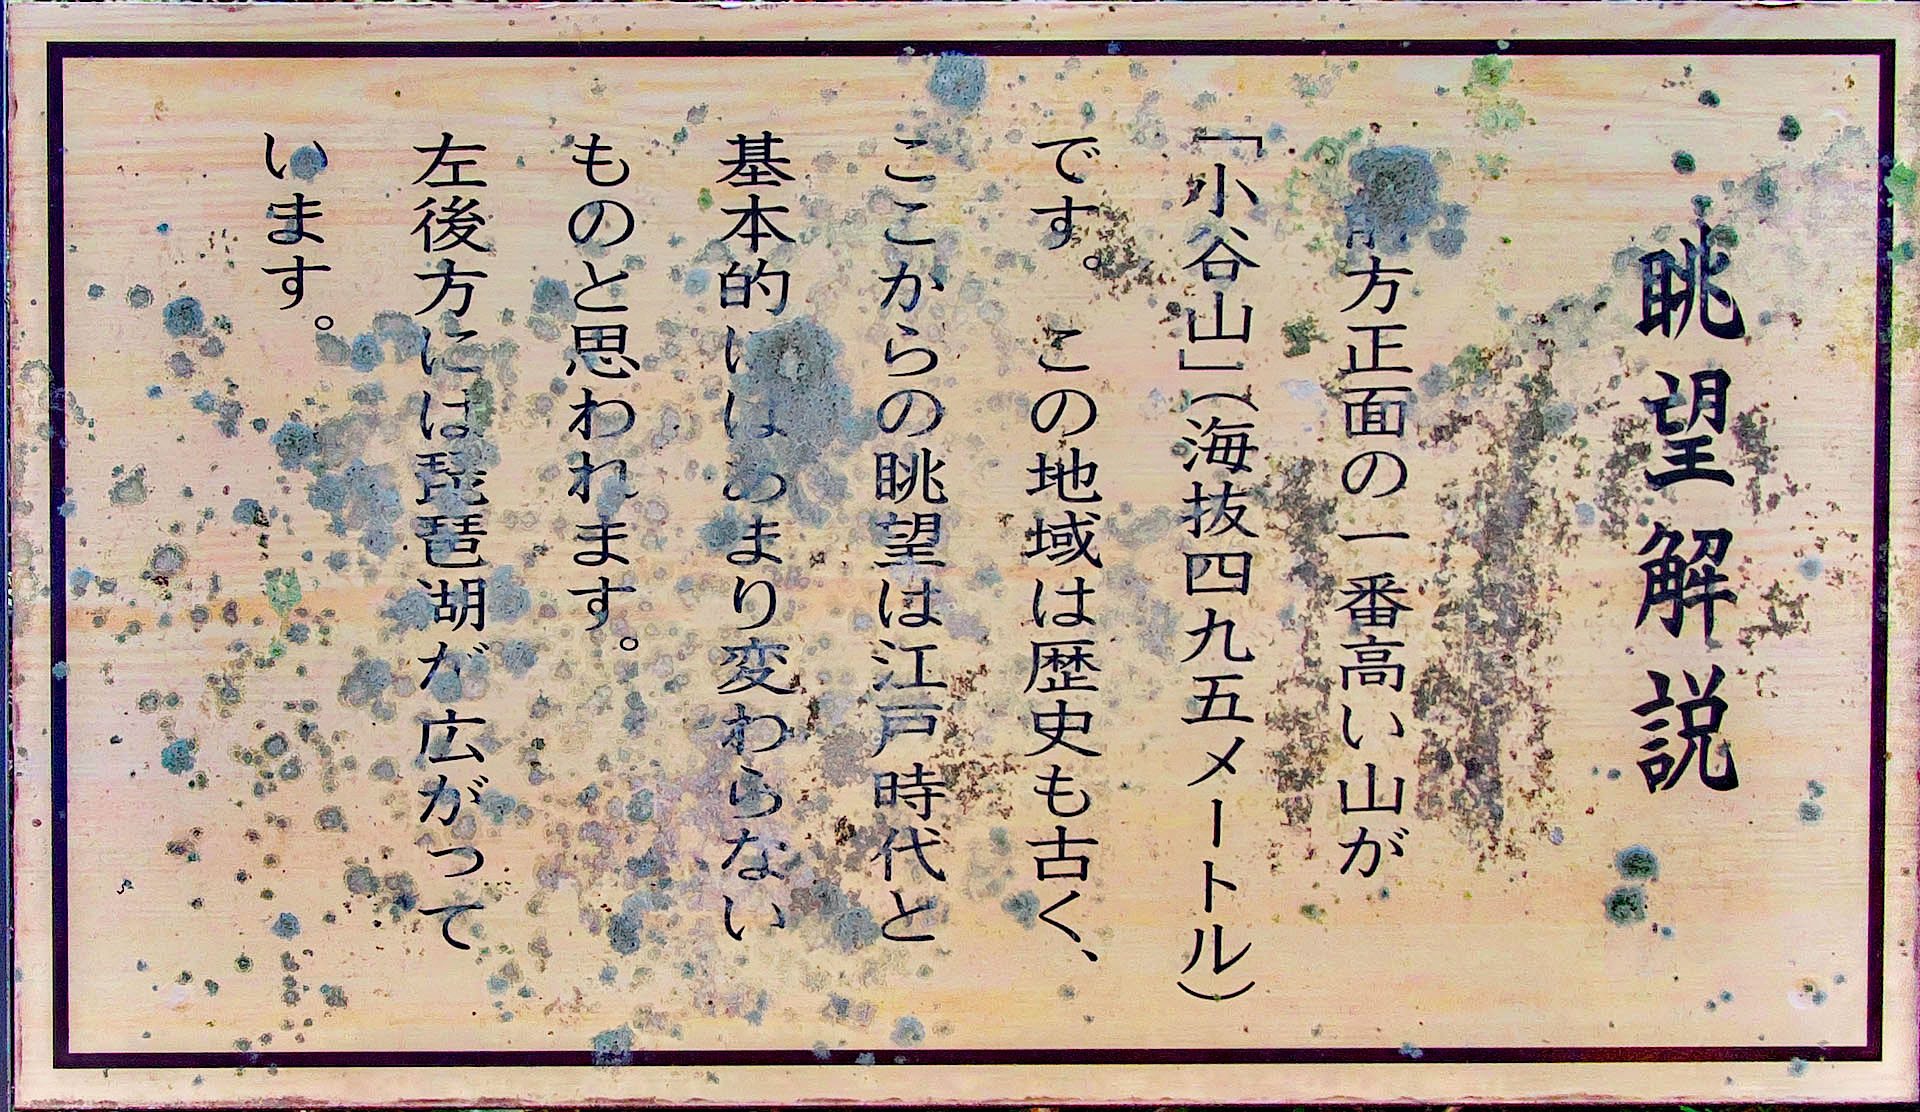 眺望解説
前方正面の一番高い山が
「小谷山」（海抜四九五メートル）
です。この地域は歴史も古く、
ここからの眺望は江戸時代と
基本的にはあまり変わらない
ものと思われます。
左後方には琵琶湖が広がって
います。